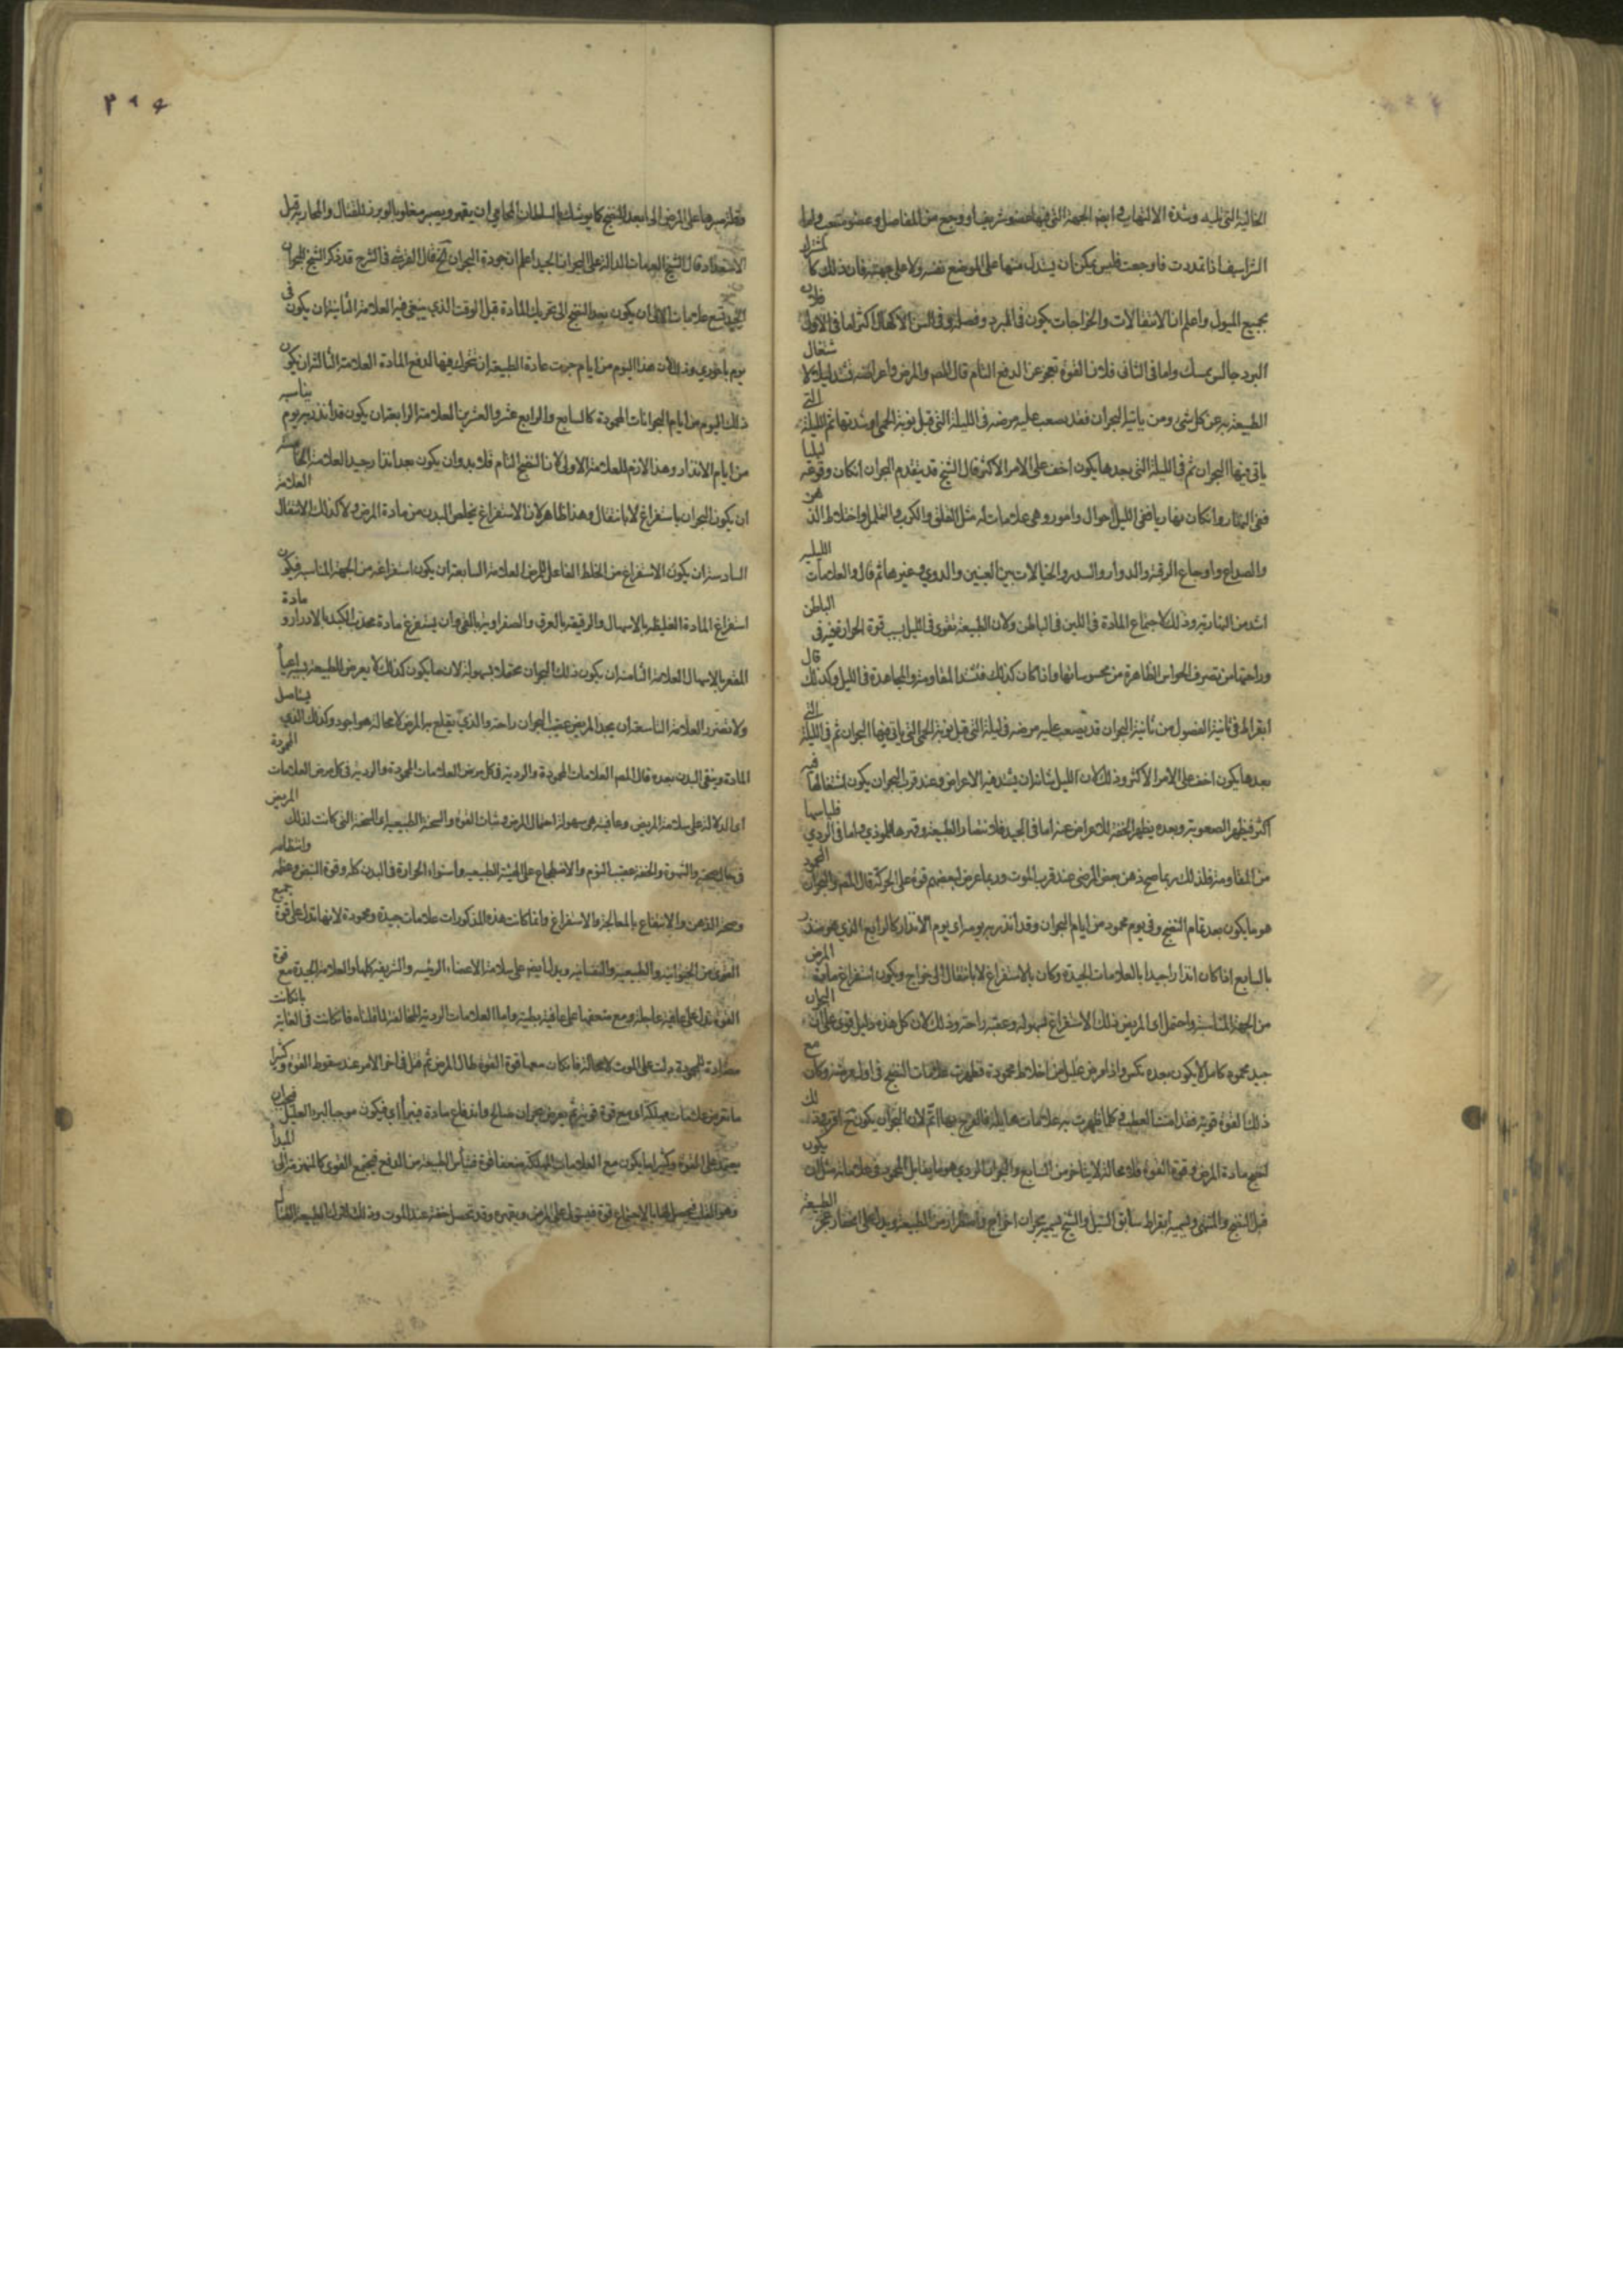 الخالية التى تليه وشدة الالتهاب فى ايض الجهة التى فيها عضو شريف او وجع من المفاصل وعضو متعب واما
الشراسيف اذا تمددت فاوجعت فليس يمكن ان يستدل منها على الموضع نفسه ولا على جهته فان ذلك كالمشترك
بجميع الميول واعلم ان الانتقالات والخراجات يكون فى البرد وفصله وفى السن الاكتهال اكثر اما فى الاول فلان
البرد حابس يمسك واما فى الثانى فلان القوة تعجز عن الدفع التام قال المص والمرض واعراضه تشتد ليلا لاشتغال
الطبيعة به عن كل شئ ومن ياتيه البحران فقد يصعب عليه مرضه فى الليلة التى قبل نوبة الحمى او شدتها ثم الليلة التى
ياتى فيها البحران ثم فى الليلة التى بعدها يكون اخف على الامر الاكثر قال الشيخ قد يتقدم البحران ان كان وقوعه ليليا
ففى النهار وان كان نهاريا ففى الليل احوال وامور وهى علامات له مثل القلق والكرب والتململ واختلاط الذهن
والصداع واوجاع الرقبة والدوار والسدر والخيالات بين العينين والدوى وغيرها ثم قال والعلامات الليلية
اشد من النهارية وذلك لاجتماع المادة فى اللين فى الباطن ولان الطبيعة تقوى فى الليل بسبب قوة الحرارة فى الباطن
وراحتها من تصرف الحواس الظاهرة من محسوساتها واذا كان كذلك فتشتد المقاومة والمجاهدة فى الليل وكذلك قال
ابقراط فى ثانية الفصول من ياتيه البحران قد يصعب عليه مرضه فى ليلة التى قبل نوبة الحمى التى ياتى فيها البحران ثم فى الليلة التى
بعدها يكون اخف على الامر الاكثر وذلك لان الليل شانه ان يشتد فيه الاعراض وعند قرب البحران يكون اشتغالها فيه
اكثر فيظهر الصعوبة وبعده يظهر الخفة للاعراض عنه اما فى الجيد فلانتصار الطبيعة وقهرها للموذى واما فى الردى فلياسها
من المقاومة فلذلك ربما صح ذهن بعض المرضى عند قرب الموت وربما عرض لبعضهم قوة على الحركة قال المص والبحران المحمود
هو ما يكون بعد تمام النضج وفى يوم محمود من ايام البحران وقد انذر به يومه اى يوم الانذار كالرابع الذى هو منذر
بالسابع اذا كان انذارا جيدا بالعلامات الجيدة وكان بالاستفراغ لا بانتقال الى خراج ويكون استفراغ مادة المرض
من الجهة المناسبة واحتمل اى المريض ذلك الاستفراغ بسهولة وعقبه راحة وذلك لان كل هذه دليل قوى على ان البحران
جيد محمود كامل لا يكون بعده نكس واذا مرض عليل من اخلاط محمودة فظهرت علامات النضج فى اول مرضه وكان مع
ذلك القوة قوية فقد امنت العطب فى كلما ظهرت به علامات هايلة فالفرح بها اتم لان البحران يكون ح اقرب وذلك
لنضج مادة المرض وقوة القوة فلا محالة لا يتاخر من السابع والبحران الردى هو ما يقابل المحمود فى علاماته مثل ان يكون
قبل النضج والمنتهى ويسميه ابقراط سابق السيل والشيخ يسميه بحران اخراج واضطرار من الطبيعة ويدل على انضار عجز الطبيعة
وقلة صبرها على المرض الى ما بعد النضج كما يوشك السلطان المحامى ان يقهر ويصير مغلوبا لو برز للقتال والمحاربة قبل
الاستعداد قال الشيخ العلامات الدالة على البحران الجيد اعلم ان جودة البحران قال القرشى فى الشرح قد ذكر الشيخ للبحران
الجيد تسع علامات الاولى ان يكون بعد النضج الى تحريك المادة قبل الوقت الذى ينبغى فيه العلامة الثانية ان يكون فى
يوم باحورى وذلك لان هذا اليوم من ايام جرت عادة الطبيعة ان تتحرك فيها لدفع المادة العلامة الثالثة ان يكون
ذلك اليوم من ايام البحرانات المحمودة كالسابع والرابع عشر والعشرين العلامة الرابعة ان يكون قد انذر به يوم يناسبه
من ايام الانذار وهذا لازم للعلامة الاولى لان النضج التام فلا بد وان يكون بعد انذار جيد العلامة الخامسة
ان يكون البحران باستفراغ لا بانتقال وهذا ظاهر لان الاستفراغ يخلص البدن من مادة المرض ولا كذلك الانتقال العلامة
السادسة ان يكون الاستفراغ من الخلط الفاعل للمرض العلامة السابعة ان يكون استفراغه من الجهة المناسبة فيكون
استفراغ المادة الغليظة بالاسهال والرقيقة بالعرق والصفراوية بالقى وان يستفرغ مادة محدب الكبد بالادرار ومادة
المقعر بالاسهال العلامة الثامنة ان يكون ذلك البحران محتملا بسهولة لان ما يكون كذلك لا يعرض للطبيعة بسببه اعياء
ولا تضرر العلامة التاسعة ان يجد المريض عقيب البحران راحة والذى يقلع به المرض لا محالة هو اجود وكذلك الذى يستاصل
المادة وينقى البدن بعده قال المص العلامات المحمودة والردية فى كل مرض العلامات المحمودة والردية فى كل مرض العلامات المحمودة
اى الدلالة على سلامة المريض وعافيته هى سهولة احتمال المرض وثبات القوة والسحنة الطبيعية اى السحنة التى كانت لذلك المريض
فى حال صحته والشهوة والخفة عقيب النوم والاضطجاع على الهيئة الطبيعية واستواء الحرارة فى البدن كله وقوة النبض وعظمه وانتظامه
وصحة الذهن والانتفاع بالمعالجة والاستفراغ وانما كانت هذه المذكورات علامات جيدة ومحمودة لانها تدل على قوة جميع
القوى من الحيوانية والطبيعية والنفسانية ويدل ايض على سلامة الاعضاء الرئيسة والشريفة كلها والعلامة الجيدة مع قوة
القوة تدل على عافية عاجلة ومع ضعفها على عافية بطيئة واما العلامات الردية المخالفة لما قلناه فان كانت فى الغاية بان كانت
مضادة للمحمودة دلت على الموت لا محالة فان كان معها قوة القوة طال المرض ثم قتل فى اخر الامر عند سقوط القوة وكثيرا
ما تعرض علامات مهلكة اى مع قوة قوية ثم يعرض بحران صالح واندفاع مادة فيبرأ اى فيكون موجبا لبرء العليل فبحران
يعتمد على القوة وكثيرا ما يكون مع العلامات المهلكة ضعف قوة فتيأس الطبيعة من الدفع فيجتمع القوى كالمنهزمة الى المبدأ